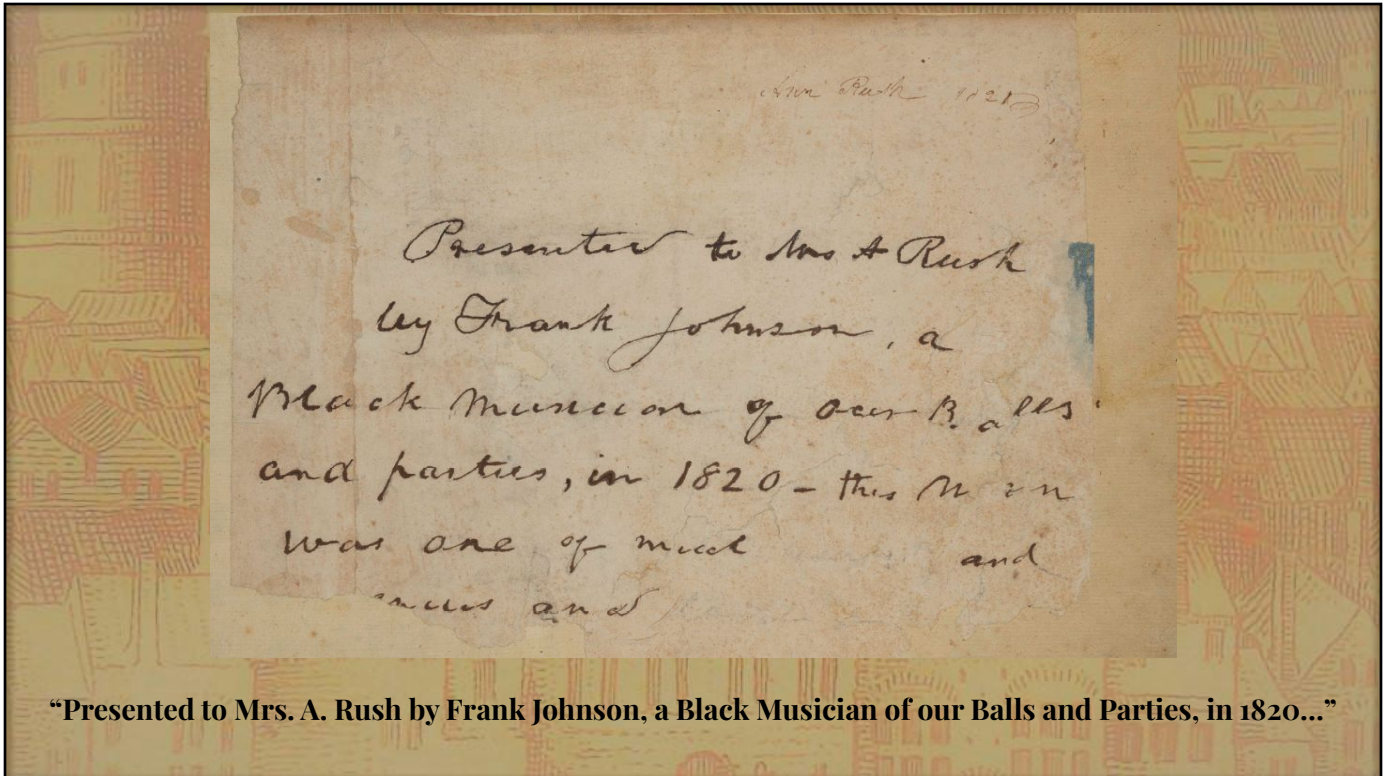 Ann Rush 1821
Presented to Mrs A Rush
by Frank Johnson, a
Black Musician of our Balls
and parties, in 1820 – this Man
was one of much
and
and
“Presented to Mrs. A. Rush by Frank Johnson, a Black Musician of our Balls and Parties, in 1820...”